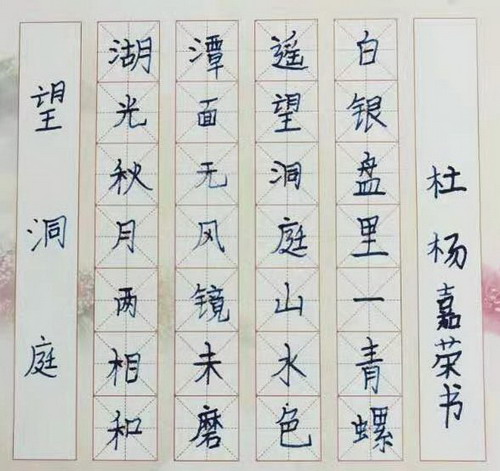 望洞庭
湖光秋月两相和
潭面无风镜未磨
遥望洞庭山水色
白银盘里一青螺
杜杨嘉荣书